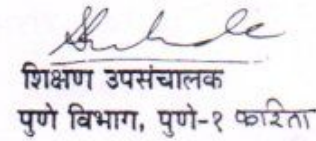 शिक्षण उपसंचालक
पुणे विभाग, पुणे-१ करिता